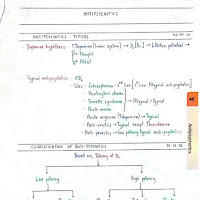 ANTIPSYCHOTICS
ANTIPSYCHOTICS - TYPICAL
- Dopamine hypothesis → ↑Dopamine [limbic system] → D2 [Rc] → ↓ Action potential →
↑ Thought
↑ Affect
- Typical antipsychotics - ⊖D2
- Uses - Schizophrenia - 1st
- Huntington's chorea
- Tourette syndrome → Atypical > typical
- Acute mania
- Acute migraine (↑dopamine) → Typical
- Anti-emetics → Typical except Thioridazine
- Anti-pruritics → low potency typical anti-psychotics
45
Antipsychotics
CLASSIFICATION OF ANTIPSYCHOTICS
Based on, Potency of D2
Low potency
High potency